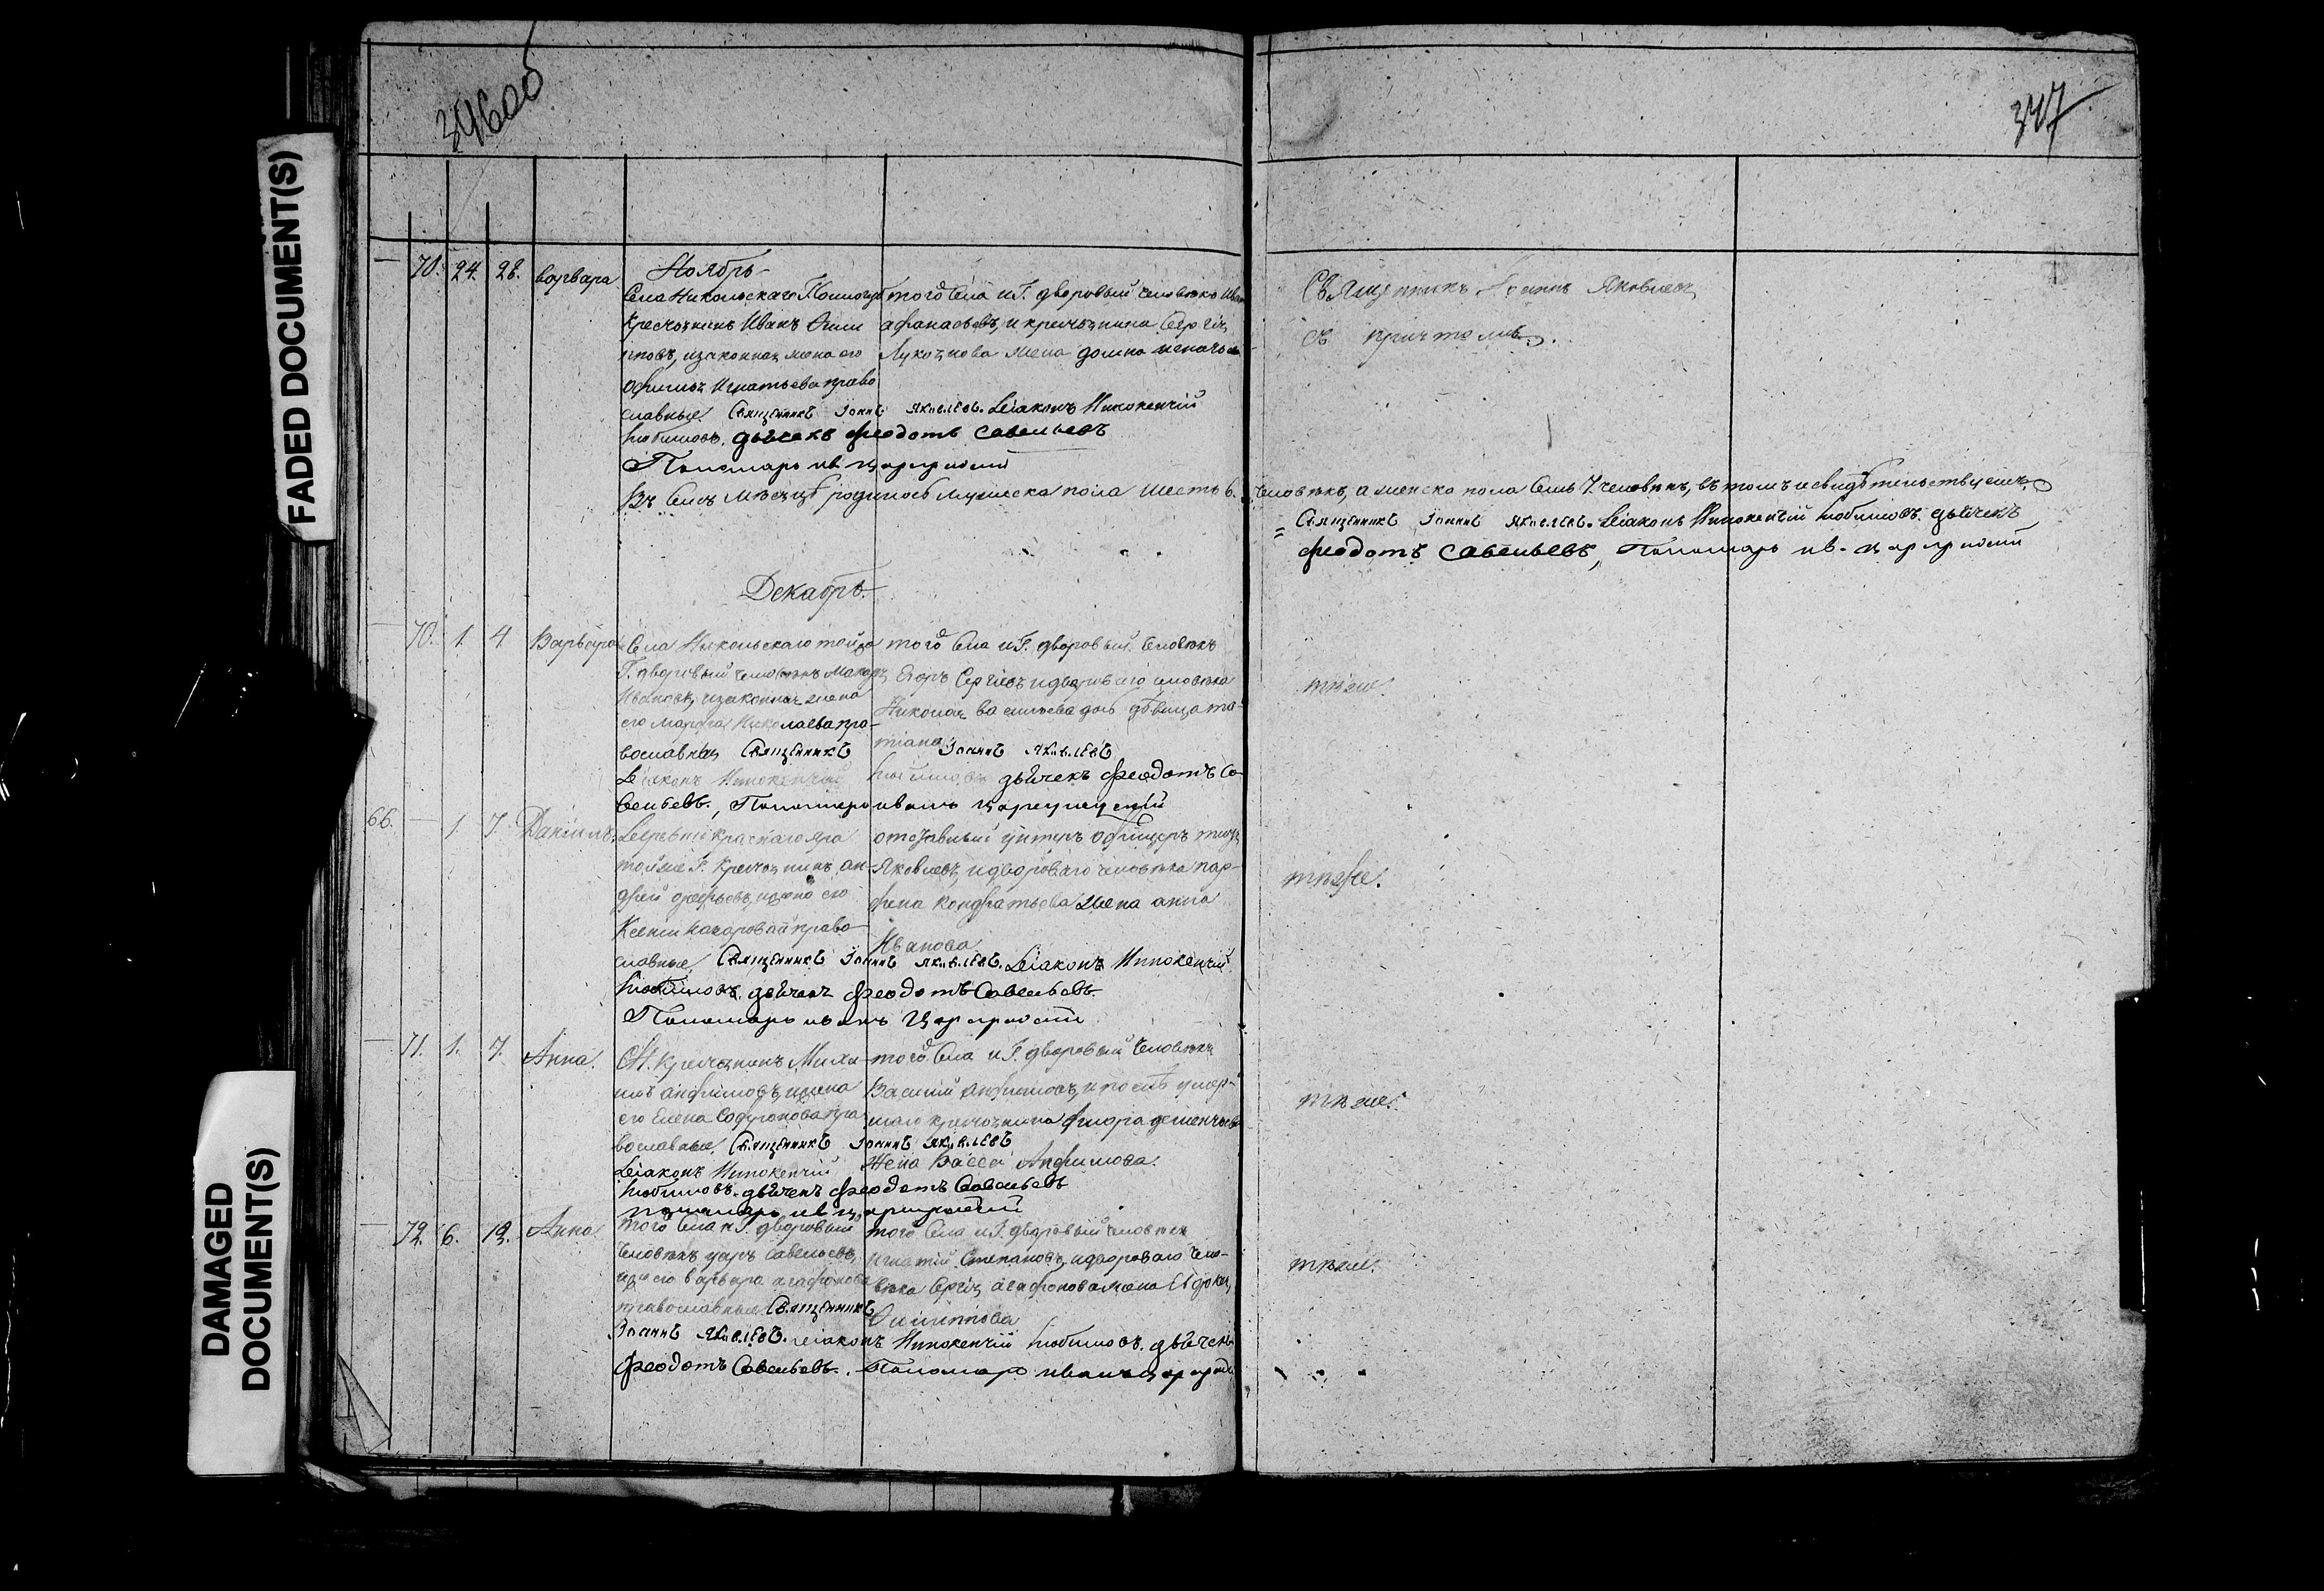 FADED DOCUMENT(S)
DAMAGED DOCUMENT(S)
346 об
347
70. 24. 28. Варвара
Ноябрь
Села Никольскаго
крестьянинъ Иванъ
и законная жена его
Игнатьева право
славные. Священникъ Іоаннъ Яковлевъ. Діаконъ Инокентій
Любимовъ. дьячекъ феодотъ Савельевъ
Пономарь ив
того Села и Г. дворовый человекъ
афанасьевъ, и крестьянина Сергія
жена домна
Священникъ Іоаннъ Яковлевъ
съ причтомъ.
Въ Семъ Месяце родилось мужеска пола шесть 6. человекъ, а женска пола Семь 7. человекъ, въ томъ и свидетельствуемъ
Священникъ Іоаннъ Яковлевъ. Діаконъ Инокентій Любимовъ. дьячекъ
феодотъ Савельевъ, Пономарь ив.
Декабрь
70. 1. 4. Варвара
Села Никольскаго той же
Г. дворовый человекъ Макаръ
Ивановъ, и законная жена
его Марфа Николаева пра-
вославныя Священникъ Іоаннъ Яковлевъ
Діаконъ Инокентій Любимовъ дьячекъ феодотъ Са-
вельевъ., Пономарь иванъ
того Села и Г. дворовый человекъ
Егоръ Сергіевъ и двороваго человека
Николая васильева дочь девица та-
тіана
тотже.
66. 1. 7. Даніилъ
Деревни Краснаго яра
той же Г. Крестьянинъ ан-
дрей и жена его
Ксения право-
славные, Священникъ Іоаннъ Яковлевъ. Діаконъ Инокентій
Любимовъ. дьячекъ феодотъ Савельевъ.
Пономарь иванъ
отставный унтеръ офицеръ
Яковлевъ, и двороваго человека пар-
фена кондратьева жена анна
Иванова
тотже.
71. 1. 7. Анна.
С. Н. крестьянинъ Миха-
илъ анфимовъ, и жена
его Елена Софронова пра
вославные, Священникъ Іоаннъ Яковлевъ
Діаконъ Инокентій
Любимовъ. дьячекъ феодотъ Савельевъ
пономарь ив
того Села и Г. дворовый человекъ
Василий анфимовъ, и после умер-
шаго крестьянина
Жена Васса Анфимова.
тотже.
72. 6. 12. Анна
того Села и Г. дворовый
человекъ Савельевъ,
и жена его варвара агафонова
православные. Священникъ
Іоаннъ Яковлевъ. діаконъ Инокентій Любимовъ. дьячекъ
феодотъ Савельевъ. Пономарь иванъ
того Села и Г. дворовый человекъ
Игнатій Степановъ, и двороваго чело-
века Сергія агафонова жена Евдокия
Филиппова
тотже.